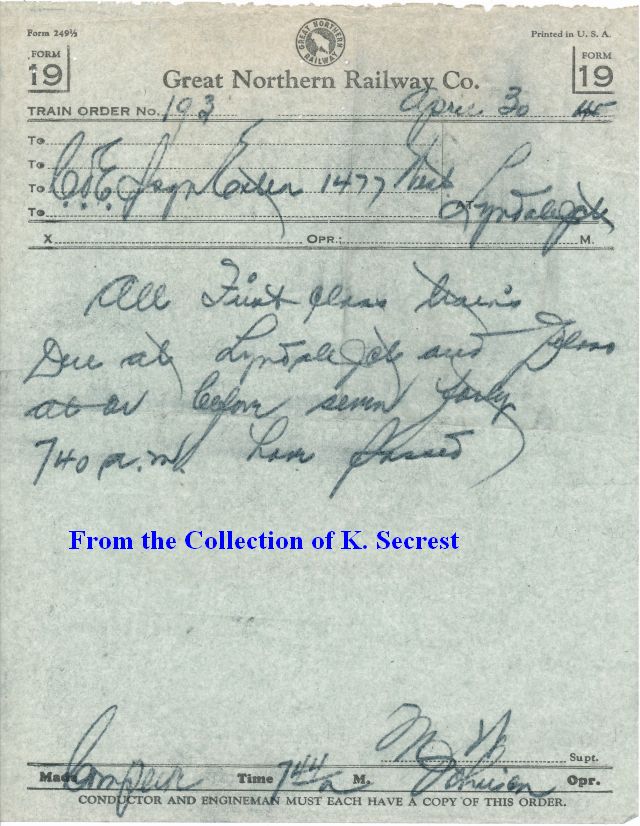 Form 249½
Printed in U. S. A.
GREAT NORTHERN RAILWAY
FORM 19
FORM 19
Great Northern Railway Co.
TRAIN ORDER No. 193 April 30 45
To
To
To C&E Psgr Extra 1477 West
To Lyndale Jct
X OPR.: M.
All First class trains
Due at Lyndale Jct and
at or before seven forty
740 a.m. have passed
From the Collection of K. Secrest
M W
Supt.
Made Complete Time 744 a M. Johnson Opr.
CONDUCTOR AND ENGINEMAN MUST EACH HAVE A COPY OF THIS ORDER.